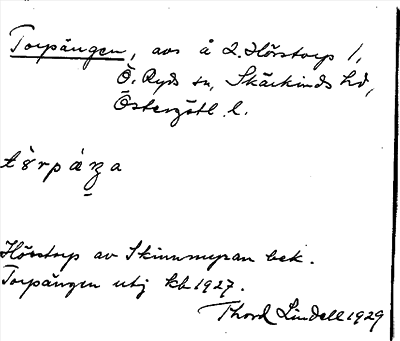 Torpängen, avs å L. Hörstorp 1,
Ö. Ryds sn, Skärkinds hd,
Östergötl. l.
Hörstorp av Skinnmypan bek.
Torpängen utj kb 1927.
Thord Lindell 1929